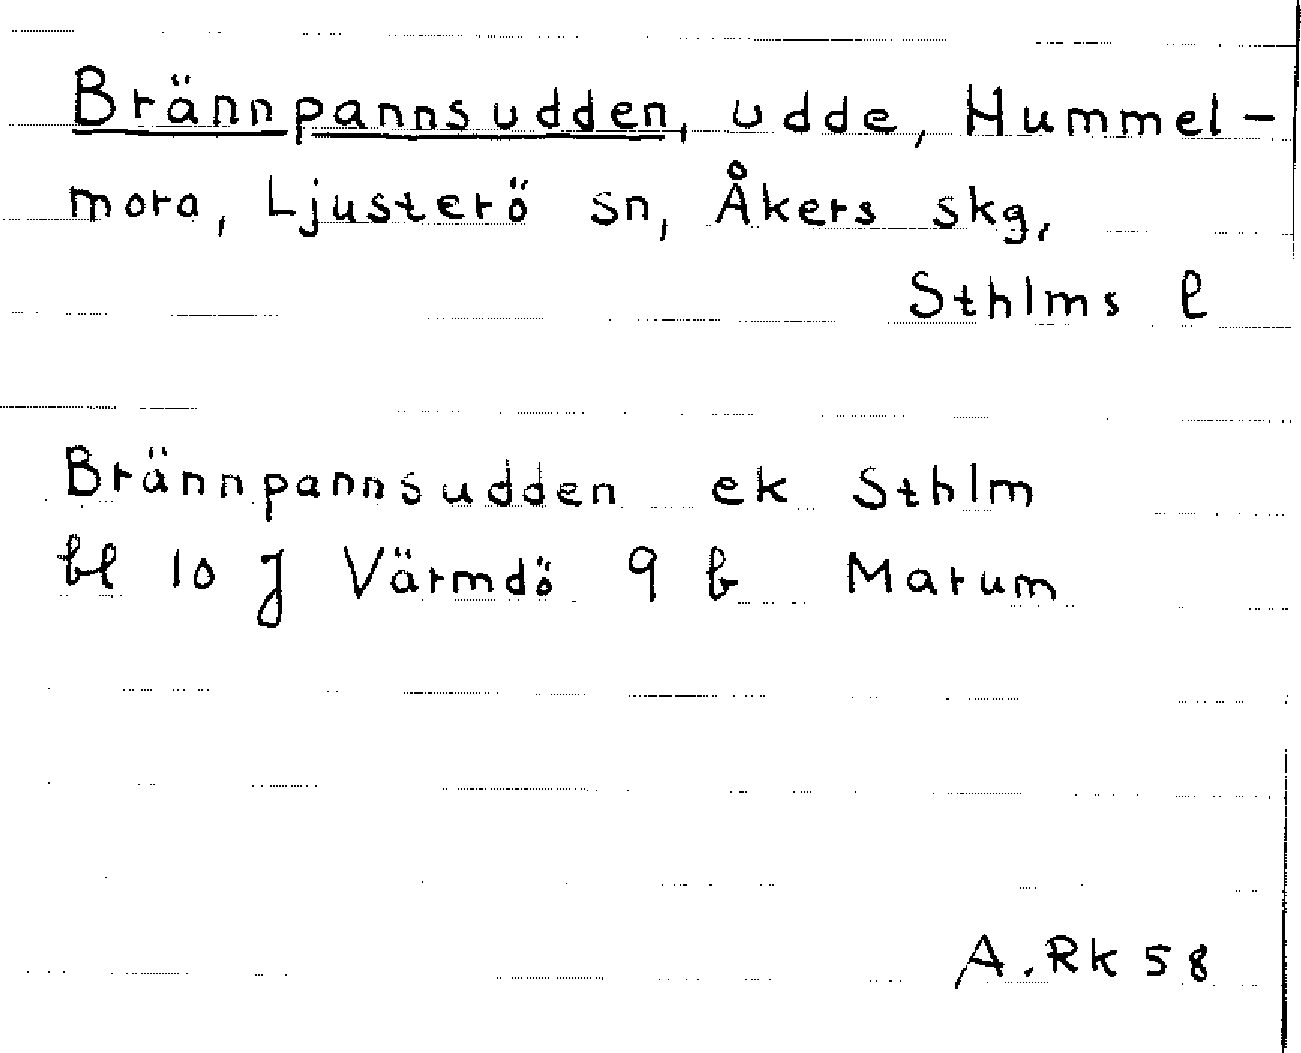 Brännpannsudden, udde, Hummel-
mora, Ljusterö sn, Åkers skg,
Sthlms l
Brännpannsudden ek Sthlm
bl 10 J Värmdö 9 b Marum
A.RK 58